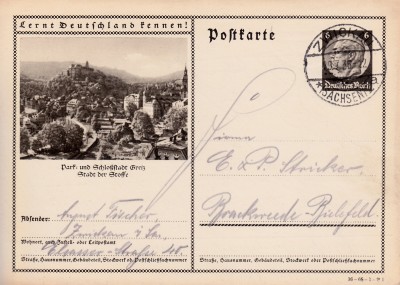 Lernt Deutschland kennen!
Park- und Schloßstadt Greiz
Stadt der Stoffe
Absender: August Fischer,
Zwickau i. Sa.
Wohnort, auch Zustell- oder Leitpostamt
Elsasser-Straße 40.
Straße, Hausnummer, Gebäudeteil, Stockwerk od. Postschließfachnummer
Postkarte
ZWICKAU
*(SACHSEN)
6
Deutsches Reich
Firma
E. & P. Stricker,
Brackwede-Bielefeld
Straße, Hausnummer, Gebäudeteil, Stockwerk od. Postschließfachnummer